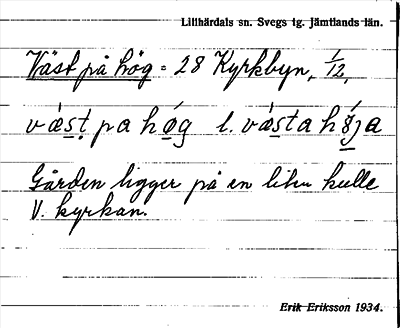 Lillhärdals sn. Svegs tg. Jämtlands län.
Väst på hög = 28 Kyrkbyn, 1/12,
vá̀sṭ pa hø̀g l. vá̀sta hø̀ja
Gården ligger på en liten kulle
V. kyrkan.
Erik Eriksson 1934.